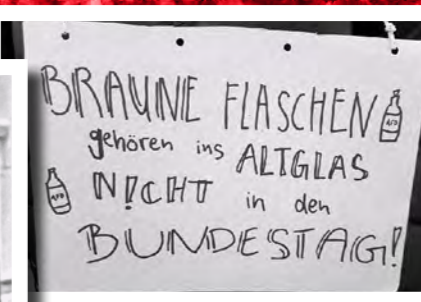 BRAUNE FLASCHEN
gehören ins ALTGLAS
NICHT in den
BUNDESTAG!